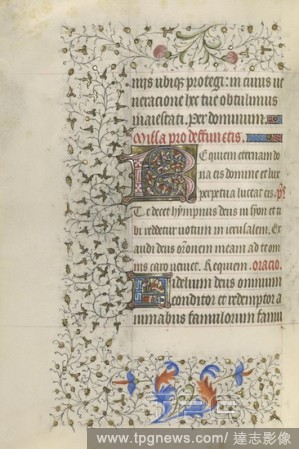 nijs ubiqz protegi: in cuius ve
neratione hec tue obtulimus
maiestati. Per dominum.
Missa pro deffunctis.
Requiem eternam do
na eis domine et lux
perpetua luceat eis. ps
Te decet hympnus deus in syon et ti
bi reddetur uotum in ierusalem. Ex
audi deus oronem meam ad te om
nis caro veniet. Requiem. oracio.
Fidelium deus omnium
conditor et redemptor a
nimabus famulorum famu
www.tpgnews.com/達志影像